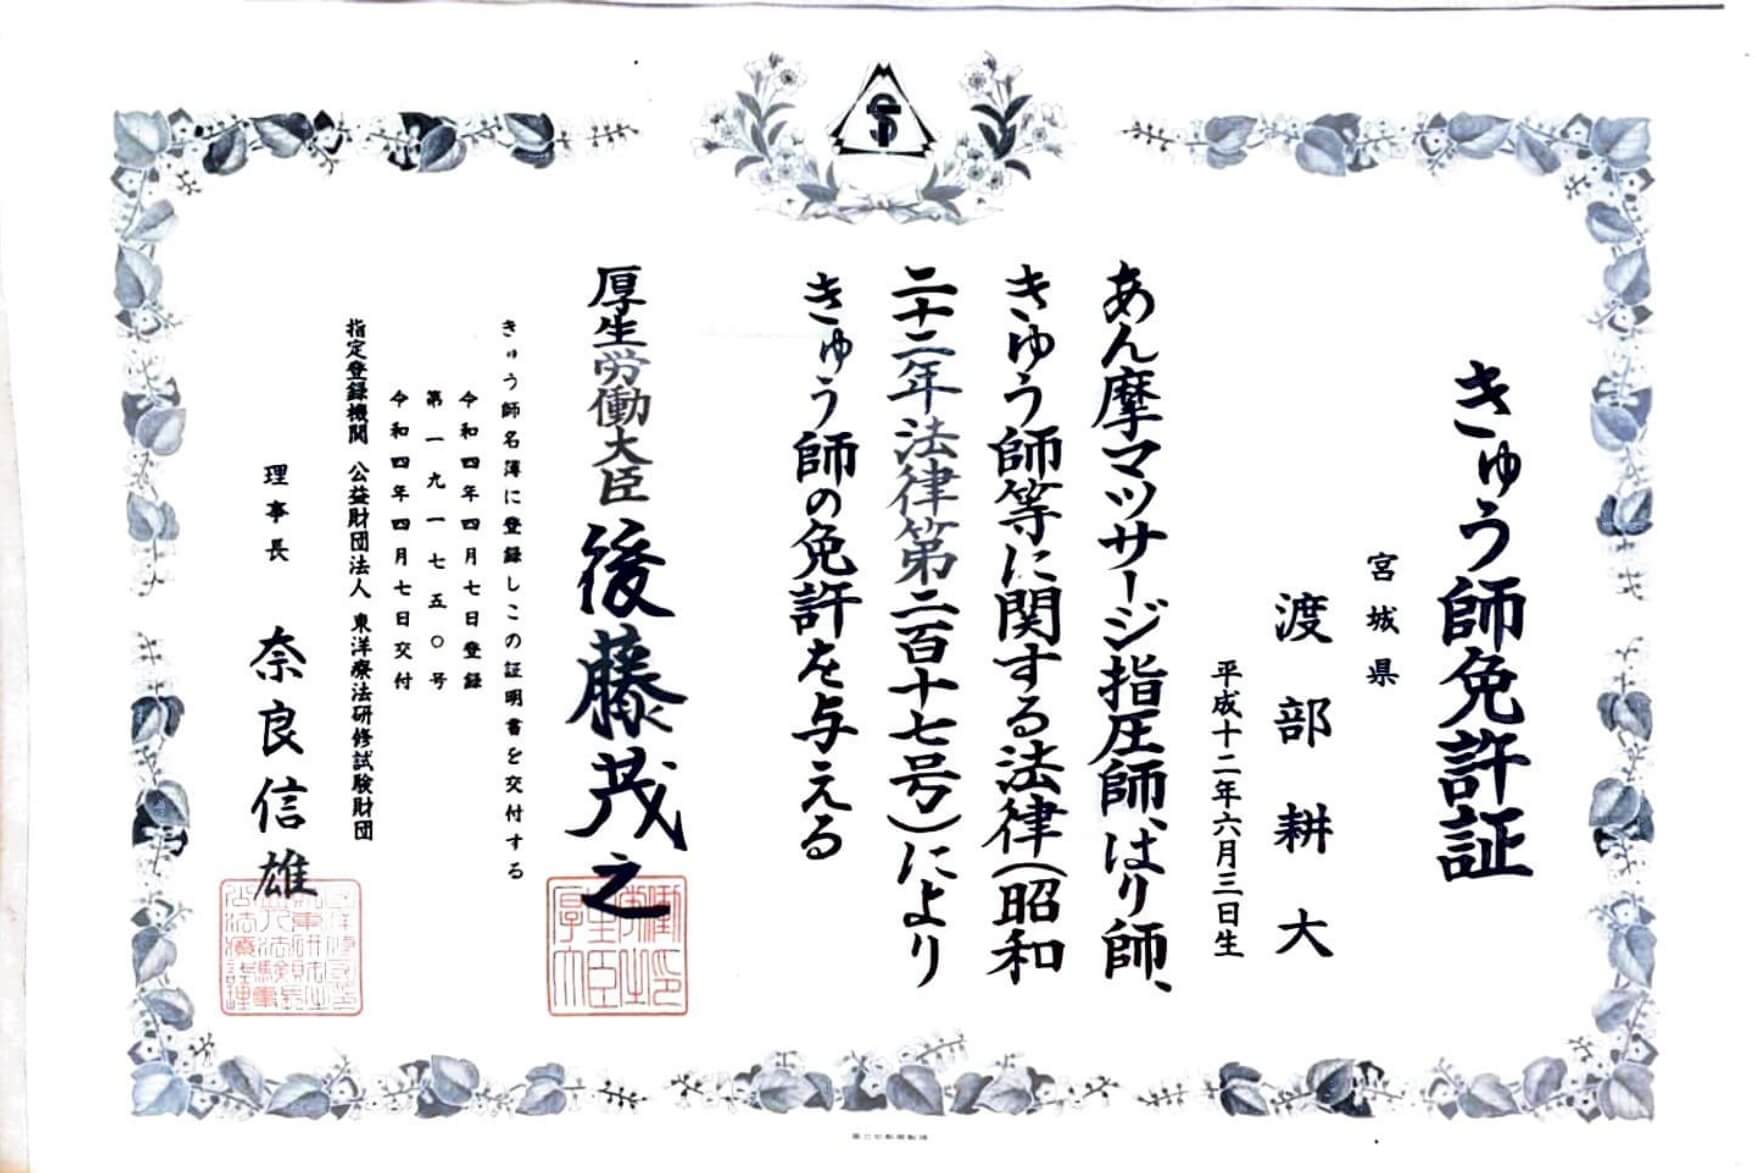 きゅう師免許証
宮城県
渡部耕大
平成十二年六月三日生
あん摩マツサージ指圧師、はり師、
きゆう師等に関する法律(昭和
二十二年法律第二百十七号)により
きゆう師の免許を与える
厚生労働大臣 後藤茂之
きゆう師名簿に登録しこの証明書を交付する
令和四年四月七日登録
第一九一七五〇号
令和四年四月七日交付
指定登録機関 公益財団法人 東洋療法研修試験財団
理事長 奈良信雄